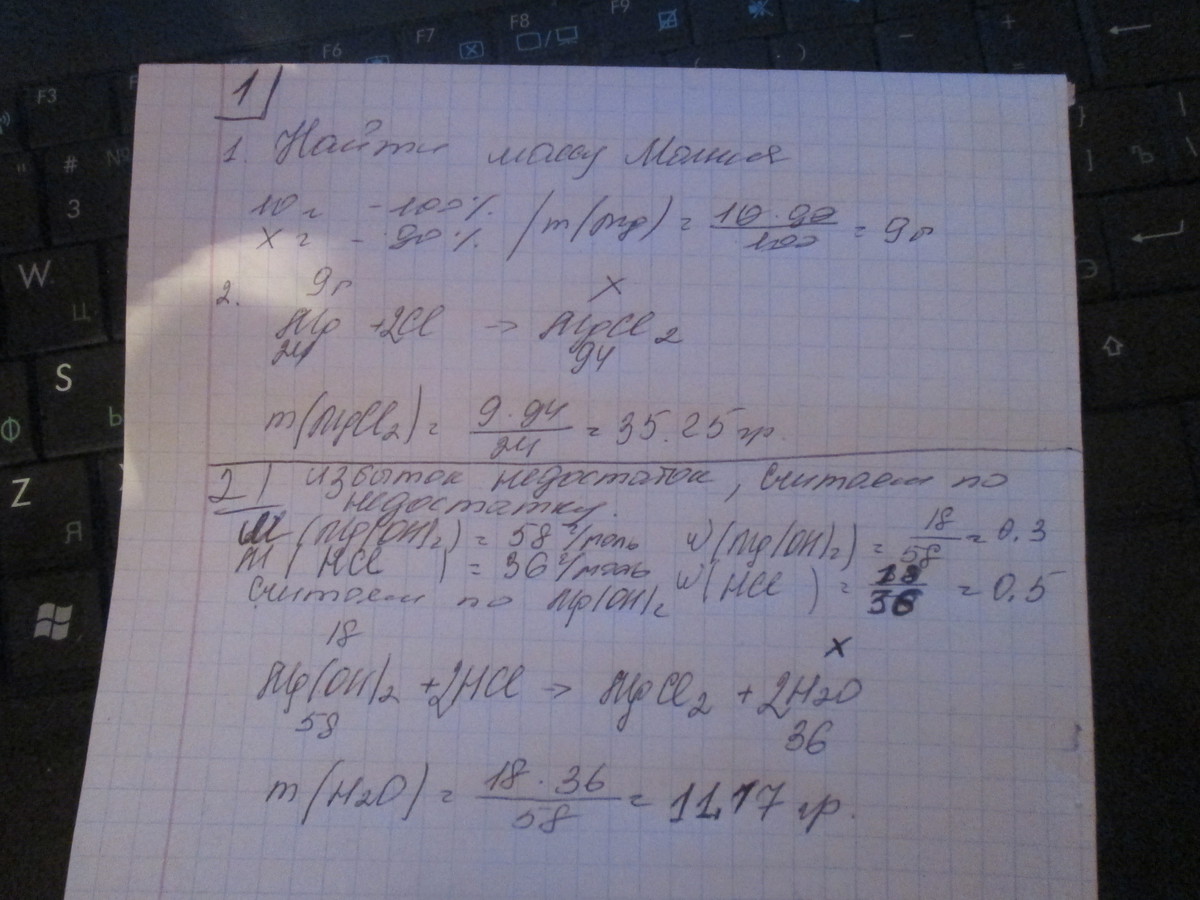 F6 F7 F8 F9
F3
# №
3
W
Ц
S
Ф Ы
Z
Я
Э
Ъ
1
1. Найти массу Магния
10 г - 100%
x г - 90% / m(Mg) = 10 · 90 / 100 = 9 г
2. 9 г x
Mg + 2Cl → MgCl2
24 94
m(MgCl2) = 9 · 94 / 24 = 35.25 гр.
2 избыток недостаток, считаем по
недостатку.
M(Mg(OH)2) = 58 г/моль W(Mg(OH)2) = 18 / 58 = 0.3
M(HCl) = 36 г/моль W(HCl) = 18 / 36 = 0.5
считаем по Mg(OH)2
18 x
Mg(OH)2 + 2HCl → MgCl2 + 2H2O
58 36
m(H2O) = 18 · 36 / 58 = 11,17 гр.